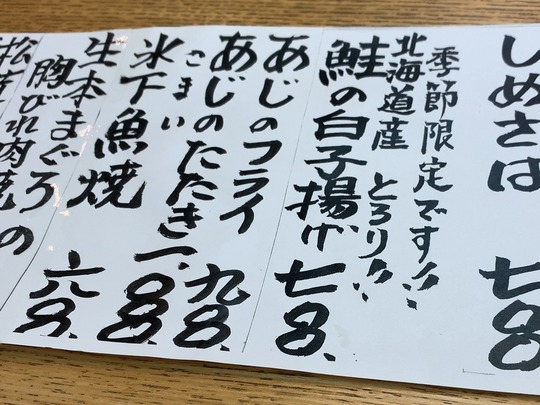 しめさば 七88
季節限定です!!
北海道産 とろり!!
鮭の白子揚げ 七8、
あじのフライ 九8、
あじのたたき 一、88、
こまい
氷下魚焼 六8、
生本まぐろ
胸びれ肉焼の